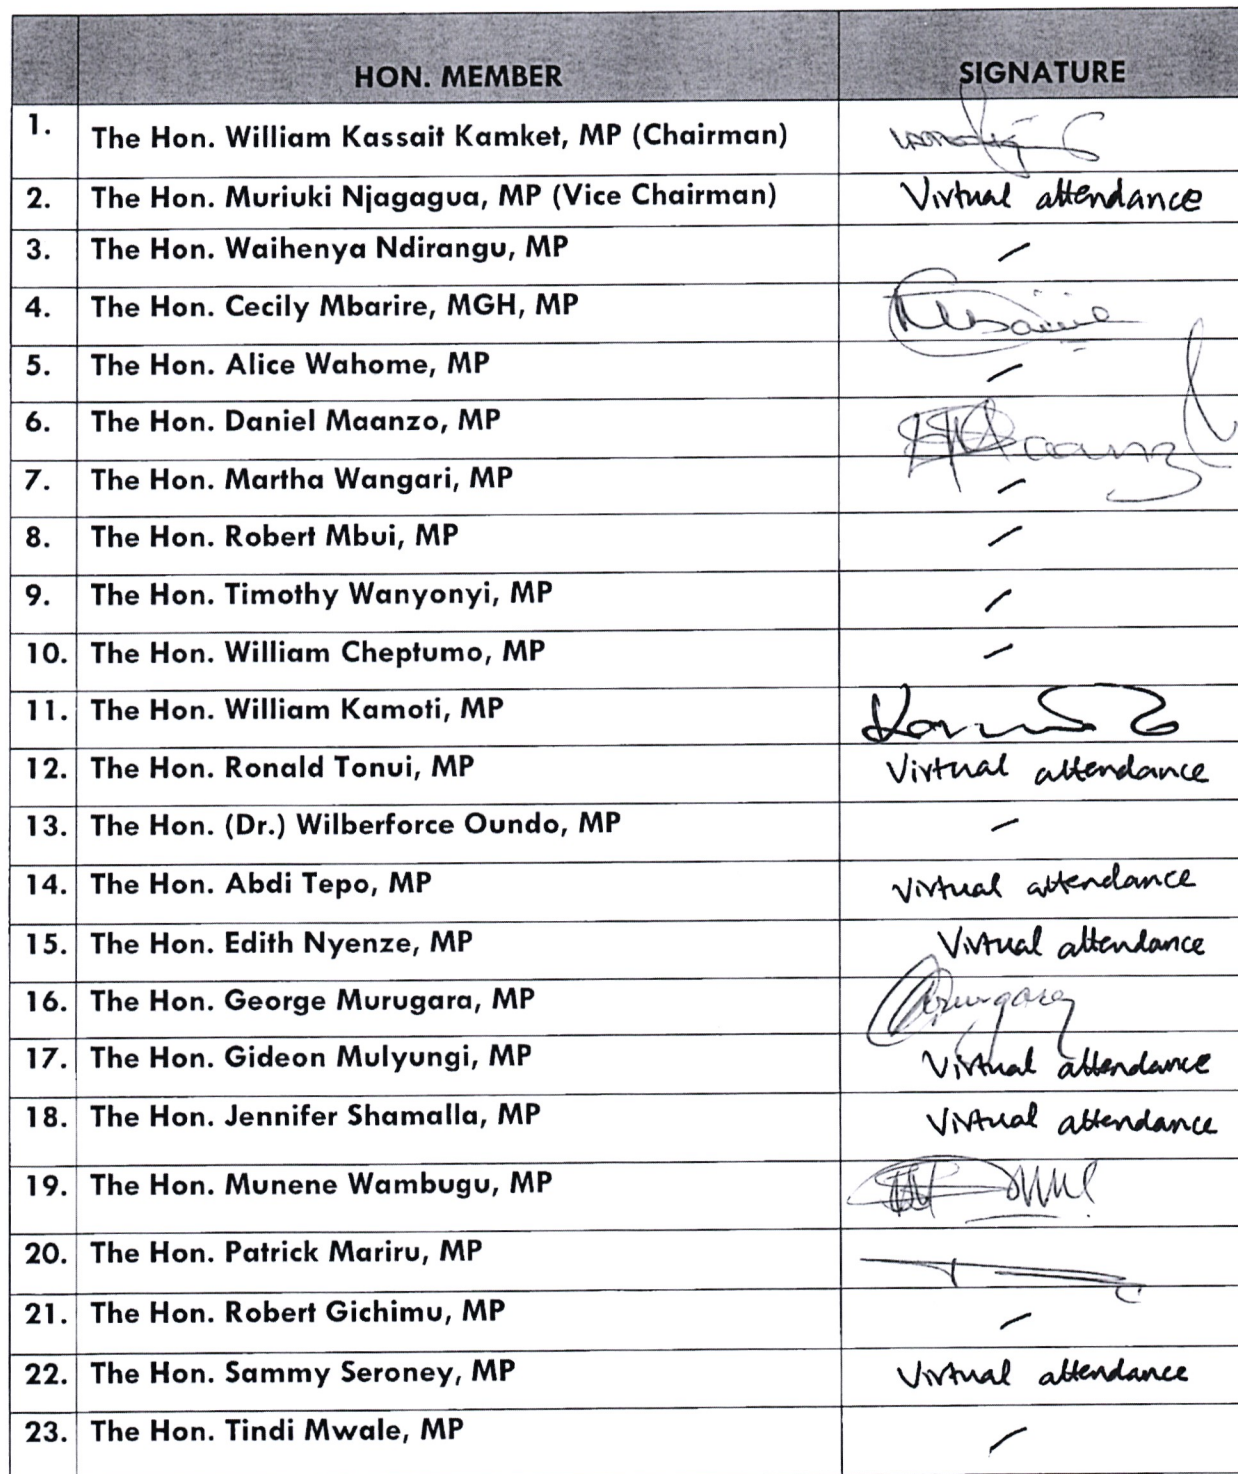 HON. MEMBER SIGNATURE
1. The Hon. William Kassait Kamket, MP (Chairman)
2. The Hon. Muriuki Njagagua, MP (Vice Chairman) Virtual attendance
3. The Hon. Waihenya Ndirangu, MP –
4. The Hon. Cecily Mbarire, MGH, MP
5. The Hon. Alice Wahome, MP –
6. The Hon. Daniel Maanzo, MP
7. The Hon. Martha Wangari, MP –
8. The Hon. Robert Mbui, MP –
9. The Hon. Timothy Wanyonyi, MP –
10. The Hon. William Cheptumo, MP –
11. The Hon. William Kamoti, MP
12. The Hon. Ronald Tonui, MP Virtual attendance
13. The Hon. (Dr.) Wilberforce Oundo, MP –
14. The Hon. Abdi Tepo, MP Virtual attendance
15. The Hon. Edith Nyenze, MP Virtual attendance
16. The Hon. George Murugara, MP
17. The Hon. Gideon Mulyungi, MP Virtual attendance
18. The Hon. Jennifer Shamalla, MP Virtual attendance
19. The Hon. Munene Wambugu, MP
20. The Hon. Patrick Mariru, MP
21. The Hon. Robert Gichimu, MP –
22. The Hon. Sammy Seroney, MP Virtual attendance
23. The Hon. Tindi Mwale, MP –